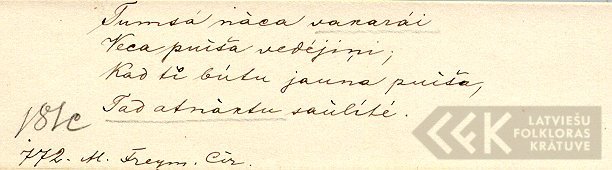 Tumsá náca vakarái
Veca puiša vedéjiņi;
Kad tĩ bútu jauņa puiša,
Tad atnáktu saũlíté.
181c
772. M. Freym. Cir.
LATVIEŠU
FOLKLORAS
KRĀTUVE